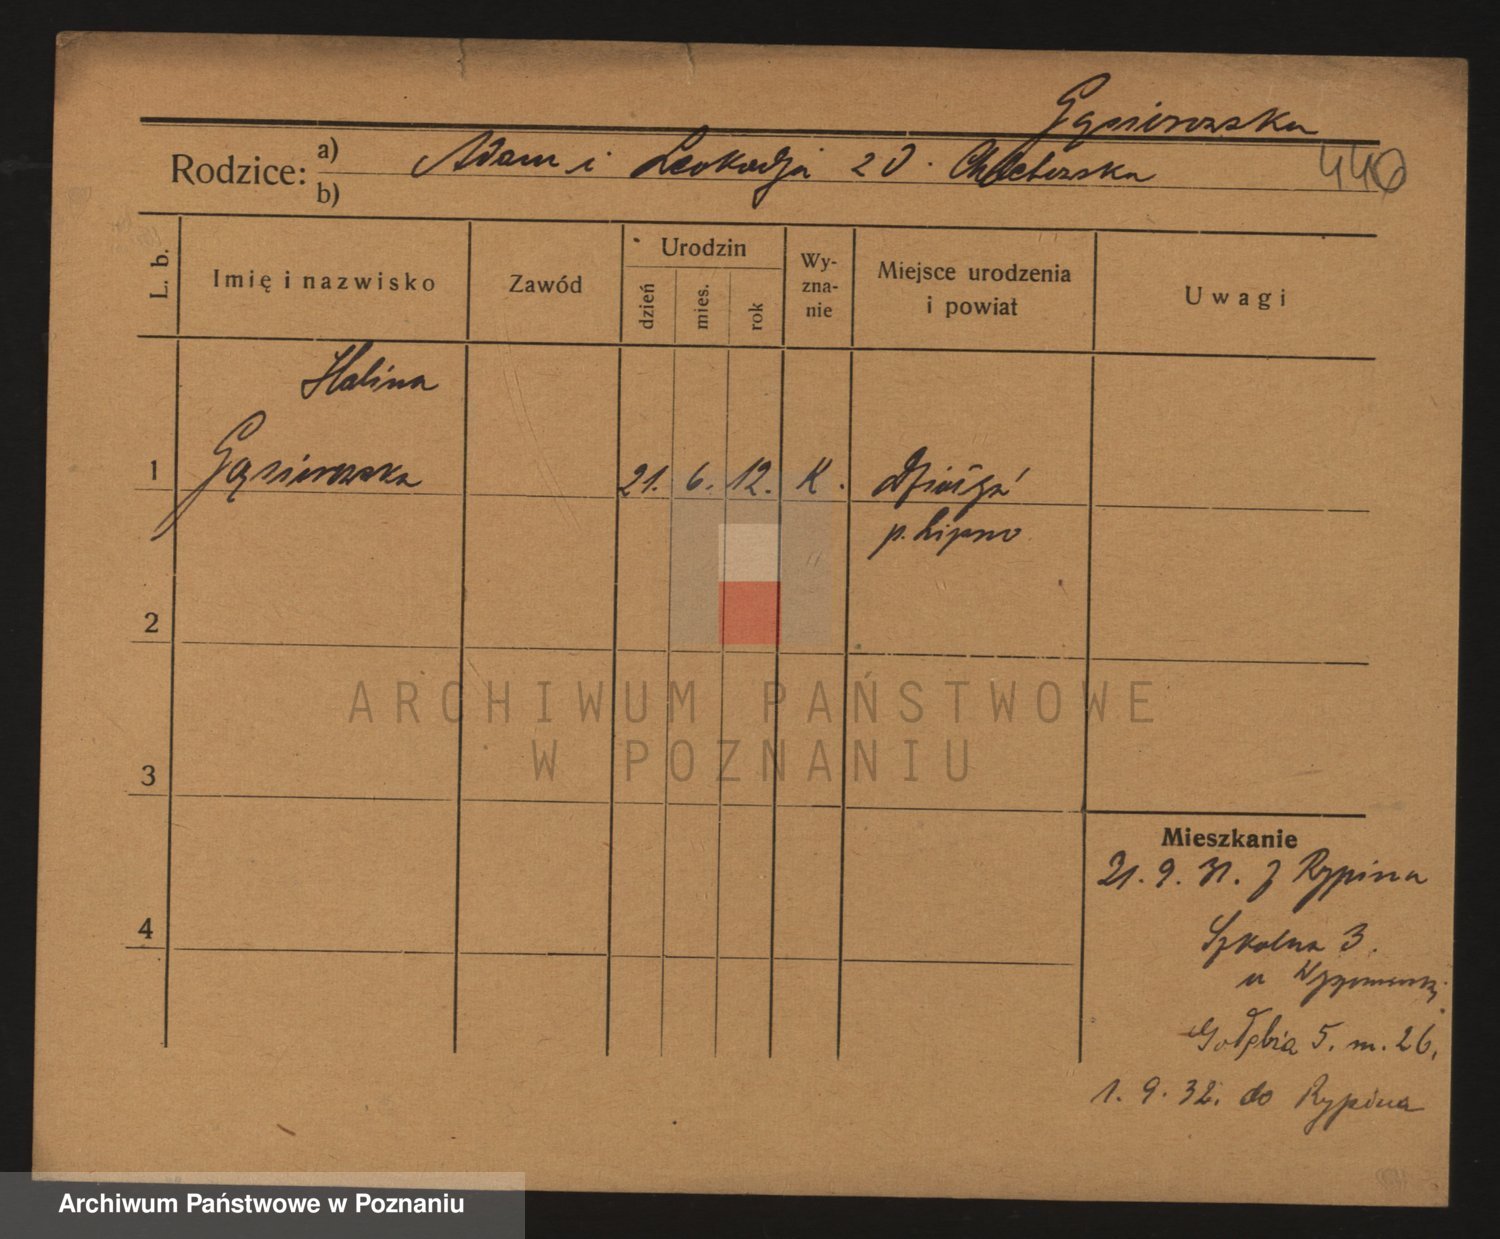 Gąsiorowska
446
Rodzice: a) Adam i Leokadja z d.
b)
L. b.
Imię i nazwisko
Zawód
Urodzin
dzień
mies.
rok
Wy-
zna-
nie
Miejsce urodzenia
i powiat
Uwagi
Halina
1 Gąsiorowska 21. 6. 12. K.
p. Lipno
2
3
4
ARCHIWUM PAŃSTWOWE
W POZNANIU
Mieszkanie
21. 9. 31. z Rypina
Szkolna 3.
u
Gołębia 5. m. 26.
1. 9. 32. do Rypina
Archiwum Państwowe w Poznaniu